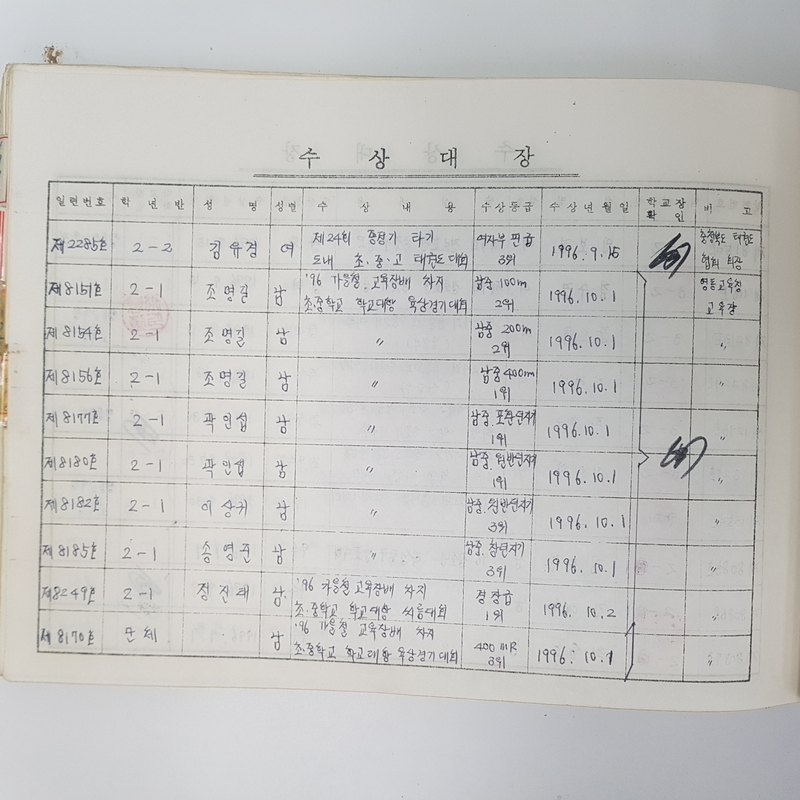 수 상 대 장
일련번호 학 년 반 성 명 성별 수 상 내 용 수상등급 수 상 년 월 일 학교장 확 인 비 고
제2285호 2-2 김유경 여 제24회 중정기 타기 도내 초.중.고 태권도대회 여자부 핀급 3위 1996.9.15 충청북도 태권도 협회 회장
제8151호 2-1 조명길 남 '96 가을철 교육장배 차지 초.중학교 학교대항 육상경기대회 남중 100m 2위 1996.10.1 영동교육청 교육장
제8154호 2-1 조명길 남 〃 남중 200m 2위 1996.10.1 〃
제8156호 2-1 조명길 남 〃 남중 400m 1위 1996.10.1 〃
제8177호 2-1 곽인섭 남 〃 남중.포환던지기 1위 1996.10.1 〃
제8180호 2-1 곽인섭 남 〃 남중.원반던지기 1위 1996.10.1 〃
제8182호 2-1 이상귀 남 〃 남중.원반던지기 3위 1996.10.1 〃
제8185호 2-1 송영준 남 〃 남중.창던지기 3위 1996.10.1 〃
제8249호 2-1 정진태 남 '96 가을철 교육장배 차지 초.중학교 학교대항 씨름대회 경장급 1위 1996.10.2 〃
제8170호 단체 남 '96 가을철 교육장배 차지 초.중학교 학교대항 육상경기대회 400mR 3위 1996.10.1 〃